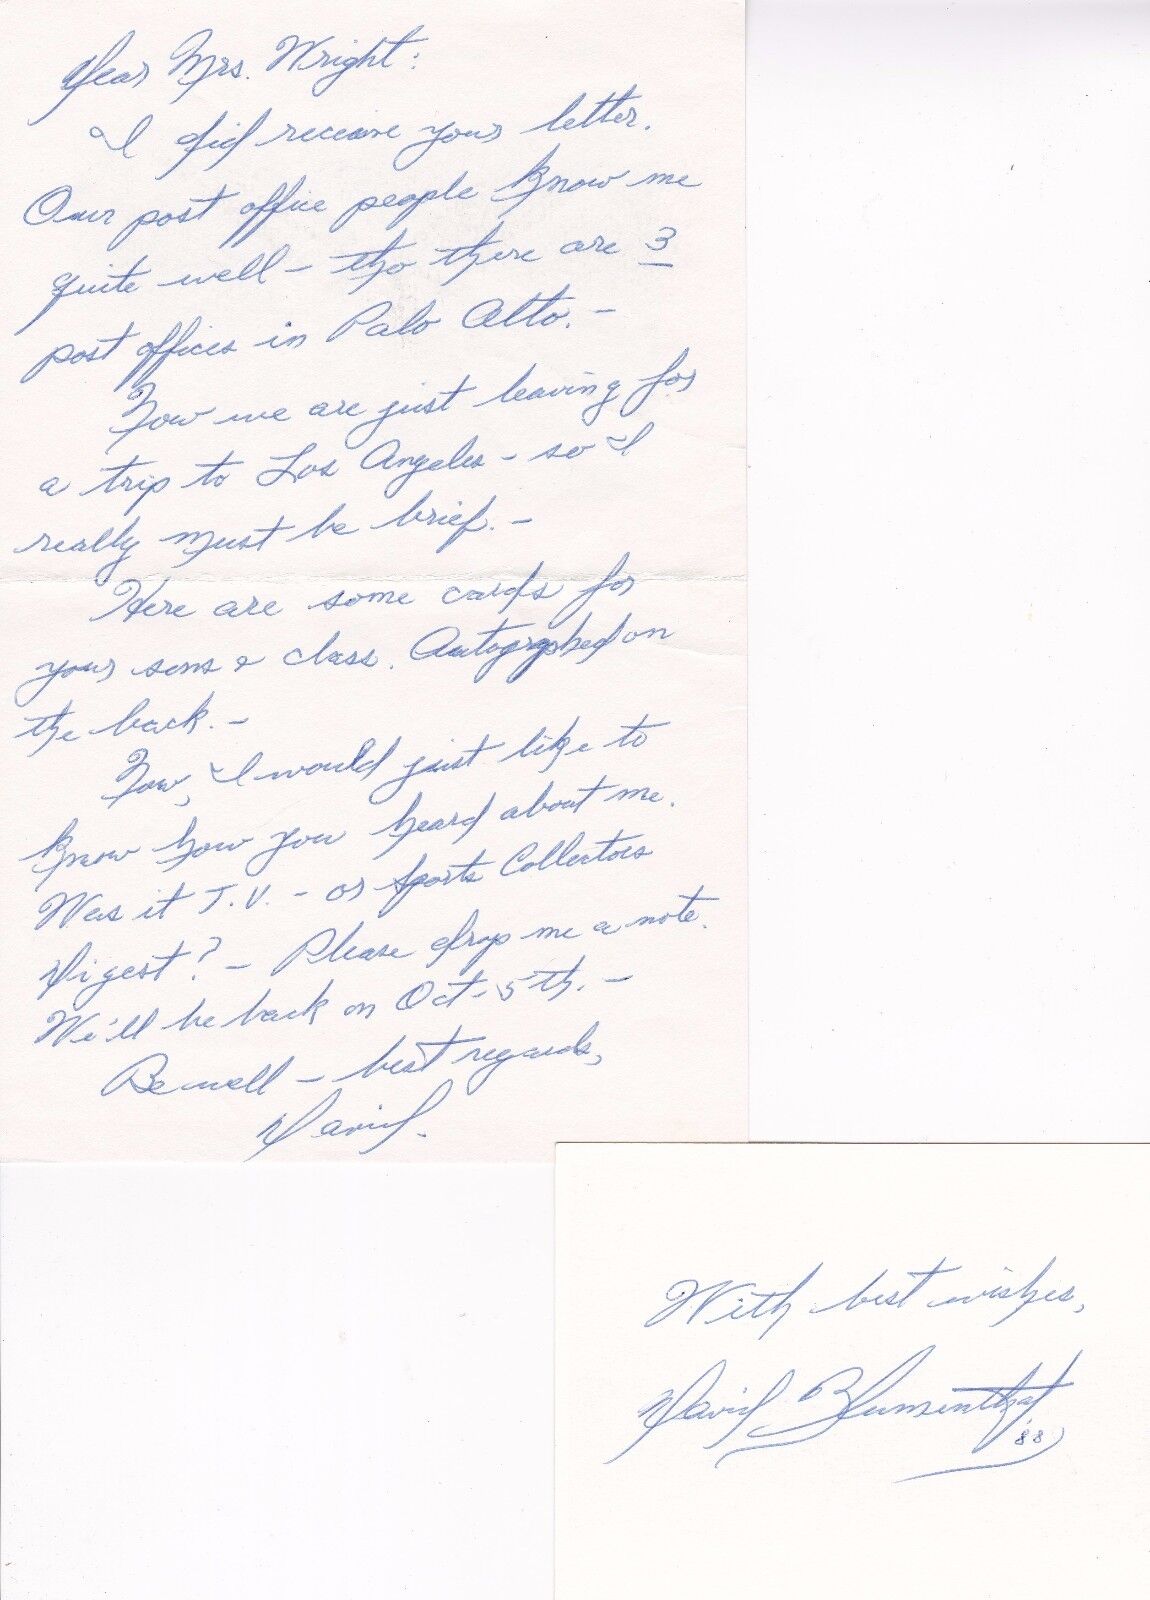 Dear Mrs. Wright:
I did receive your letter.
Our post office people know me
quite well – tho there are 3
post offices in Palo Alto. –
Now we are just leaving for
a trip to Los Angeles – so I
really must be brief. –
Here are some cards for
your sons & class. Autographed on
the back. –
Now, I would just like to
know how you heard about me.
Was it T.V. – or Sports Collectors
Digest? – Please drop me a note.
We'll be back on Oct. 5th. –
Be well – best regards,
David.
With best wishes,
David Blumenthal
'88